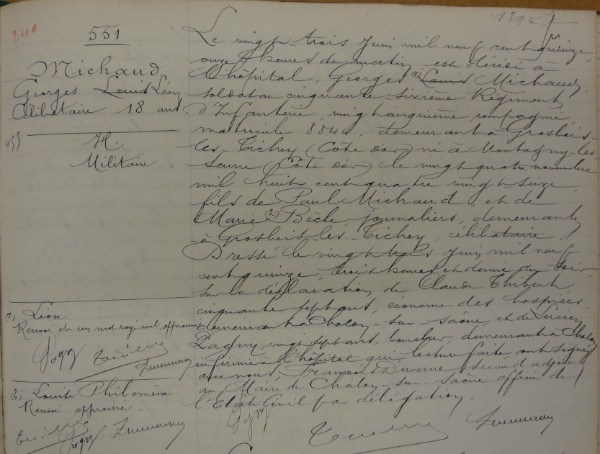 551
Michaud
Georges Louis Léon
Célibataire 18 ans
H.
Militaire
Le vingt trois juin mil neuf cent quinze,
onze heures du matin, est décédé à
l'hôpital, Georges Louis Michaud,
soldat au cinquante-sixième Régiment
d'Infanterie, vingt cinquième compagnie,
matricule demeurant à Grosbois-
les-Tichey (Côte d'or) né à Montagny-les-
Seurre (Côte d'or) le vingt quatre novembre
mil huit cent quatre vingt seize,
fils de Paul Michaud et de
Marie Bècle, journaliers, demeurant
à Grosbois-les-Tichey, célibataire.
Dressé le vingt trois juin mil neuf
cent quinze, trois heures et demie du soir,
sur la déclaration de Claude Thibert,
cinquante sept ans, économe des hospices,
demeurant à Chalon-sur-Saône, et de
vingt sept ans, demeurant à Chalon,
infirmier à l'hôpital qui, lecture faite, ont signé
avec nous, François second adjoint
au Maire de Chalon-sur-Saône officier de
l'Etat Civil par délégation.
1) Léon
Renvoi et un mot rayé nul, approuvés
2) Louis Philomène
Renvoi approuvé